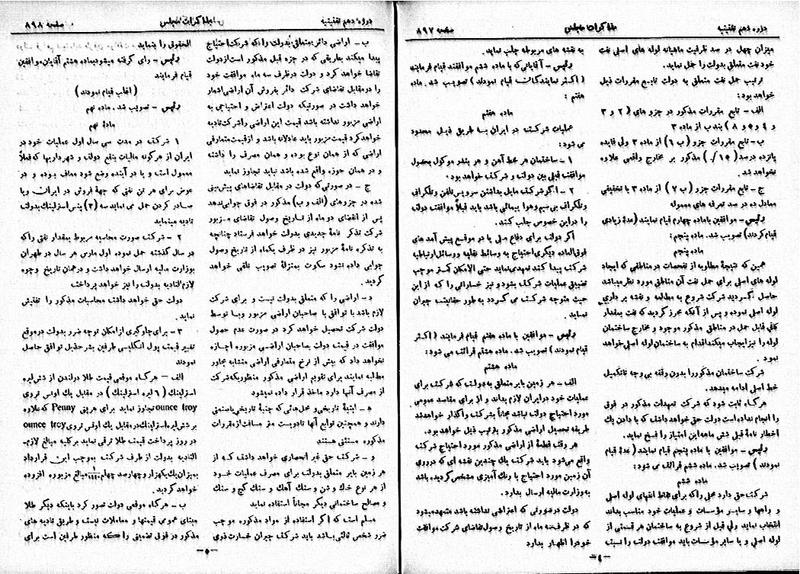 دوره دهم تقنینیه
مذاکرات مجلس
صفحه ۸۹۷
میزان چهل در صد ظرفیت ماهیانه لوله های اصلی نفت
خود نفت متعلق بدولت را حمل نماید.
ترتیب حمل نفت متعلق به دولت تابع مقررات ذیل
خواهد بود:
الف - تابع مقررات مذکور در جزو های (۲ و ۳
و ۴ و ۵ و ۸) بند ب از ماده ۳
ب - تابع مقررات جزو (ب ۶) از ماده ۳ ولی فایده
پانزده درصد (۱۵٪) مذکور بر مخارج واقعی علاوه
نخواهد شد.
ج - تابع مقررات جزو (ب ۷) از ماده ۳ با تخفیفی
معادل ده در صد تعرفه های معموله
رئیس - موافقین با ماده چهارم قیام نمایند (عدۀ زیادی
قیام کردند) تصویب شد. ماده پنجم:
ماده پنجم
همین که نتیجۀ مطلوبه از تفحصات در مناطقی که ایجاد
لوله های اصلی برای حمل نفت آن مناطق مورد نظر میباشد
حاصل گردید شرکت شروع به مطالعه و نقشه برداری
لوله اصلی نموده و پس از آنکه محرز گردید که نفت بمقدار
کافی قابل حمل در مناطق مذکور موجود و مخارج ساختمان
لوله را نیز ایجاب میکند اقدام به ساختمان لوله اصلی خواهد
نمود.
شرکت ساختمان مذکور را بدون وقفه بی وجه تا تکمیل
خط اصلی ادامه میدهد.
هرگاه ثابت شود که شرکت تعهدات مذکور در فوق
را انجام نداده است دولت حق خواهد داشت که با دادن یک
اخطار نامۀ قبلی شش ماهه این امتیاز را فسخ نماید.
رئیس - موافقین با ماده پنجم قیام نمایند (عدۀ قیام
نمودند) تصویب شد. ماده ششم قرائت می شود:
ماده ششم
شرکت حق دارد محل و راهی که برای نقاط انتهای لوله اصلی
و راهها و سایر مؤسسات و عملیات خود مناسب بداند
انتخاب نماید ولی قبل از شروع به ساختمان هر قسمتی از
لوله اصلی و یا سایر مؤسسات باید موافقت دولت را نسبت
به نقشه های مربوطه جلب نماید.
رئیس - آقایانی که با ماده ششم موافقند قیام فرمایند
(اکثر نمایندگان قیام نمودند) تصویب شد. ماده
هفتم:
ماده هفتم
عملیات شرکت در ایران بطریق ذیل محدود
می شود:
۱ - ساختمان هر خط آهن و هر بندر موکول بحصول
موافقت قبلی بین دولت و شرکت خواهد بود.
۲ - اگر شرکت مایل بداشتن سرویس تلفن و تلگراف
و تلگراف بی سیم و هوا پیمائی باشد باید قبلاً موافقت دولت
را در این خصوص جلب کند.
اگر دولت برای دفاع ملی یا در موقع پیش آمد های
فوق العاده دیگری احتیاج به وسائط نقلیه و وسائل ارتباطیه
شرکت پیدا کند تعهد می نماید حتی الامکان کمتر موجب
تضییق عملیات شرکت بشود و نیز خساراتی را که از این
حیث متوجه شرکت می گردد به طور حقانیت جبران
نماید.
رئیس - موافقین با ماده هفتم قیام فرمایند (اکثر
قیام نمودند) تصویب شد. ماده هشتم قرائت می شود:
ماده هشتم
الف - هر زمین بایر متعلق به دولت که شرکت برای
عملیات خود در ایران لازم بداند و از برای مقاصد عمومی
مورد احتیاج دولت نباشد مجاناً بشرکت واگذار خواهد شد
طریقه تحصیل اراضی مذکور بترتیب ذیل خواهد بود.
هر وقت قطعۀ از اراضی مذکور مورد احتیاج شرکت
واقع می شود باید شرکت یک چندین نقشه ای که در روی
آن زمین مورد احتیاج با رنگ آمیزی مشخص گردیده، باشد
به وزارت مالیه ارسال بدارد.
دولت در صورتی که اعتراضی نداشته باشد متعهد میشود
که در ظرف سه ماه از تاریخ وصول تقاضای شرکت موافقت
خود را اظهار بدارد
- ۴ -
دوره دهم تقنینیه
مذاکرات مجلس
صفحه ۸۹۸
ب - اراضی دائر متعلق بدولت را که شرکت احتیاج
پیدا میکند بطریقی که در جزء قبل مذکور است از دولت
تقاضا خواهد کرد و دولت در ظرف سه ماه موافقت خود
را در مقابل تقاضای شرکت دائر بفروش آن اراضی اشعار
خواهد داشت در صورتیکه دولت اعتراض و احتیاجی به
اراضی مزبور نداشته باشد قیمت این اراضی را شرکت تادیه
خواهد کرد قیمت مزبور باید عادلانه باشد و از قیمت متعارفی
اراضی که از همان نوع بوده و همان مصرف را داشته
و در همان حوزه واقع شده باشد نباید تجاوز نماید
ج - در صورتی که دولت در مقابل تقاضاهای پیش بینی
شده در جزوهای (الف و ب) مذکور در فوق جوابی ندهد
پس از انقضای دو ماه از تاریخ وصول تقاضای مزبور
شرکت تذکر نامۀ جدیدی بدولت خواهد فرستاد چنانچه
به تذکر نامۀ مزبور نیز در ظرف یکماه از تاریخ وصول
جوابی داده نشود سکوت بمنزلۀ تصویب تلقی خواهد
گردید.
د - اراضی را که متعلق بدولت نیست و برای شرکت
لازم باشد با توافق با صاحبان اراضی مزبور و با توسط
دولت شرکت تحصیل خواهد کرد در صورت عدم حصول
موافقت در قیمت دولت بصاحبان اراضی مزبوره اجازه
نخواهد داد که بیش از نرخ متعارفی اراضی متشابه مجاور
مطالبه نمایند برای تقویم اراضی مذکور منظوریکه شرکت
از مصرف آنها دارد ماخذ قرار داده نمیشود
ه - ابنیۀ تاریخی و محل هائی که جنبۀ تاریخی یا صنعتی
دارند و همچنین توابع آنها تا دویست متر مسافت از مقررات
مذکوره مستثنی هستند
و - شرکت حق غیر انحصاری خواهد داشت که از
هر زمین بایر متعلق بدولت برای مصرف عملیات خود
از هر نوع خاک و شن و سنگ آهک و سنگ گچ و سنگ
و مصالح ساختمانی دیگر مجاناً استفاده نماید
مسلم است که اگر استفاده از مواد مذکوره موجب
ضرر شخص ثالثی باشد باید شرکت جبران خسارت ذوی
الحقوق را بنماید
رئیس - رای گرفته میشود بماده هشتم آقایان موافقین
قیام فرمایند
(اغلب قیام نمودند)
رئیس - تصویب شد. ماده نهم
مادۀ نهم
۱ شرکت در مدت سی سال اول عملیات خود در
ایران از هرگونه مالیات بنفع دولت و شهرداریها که فعلاً
معمول است و یا در آینده وضع شود معاف بوده و در
عوض برای هر تن نفتی که جهة فروش در ایران و یا
صادر کردن حمل می نماید سه (۳) پنس استرلینگ بدولت
تادیه مینماید
۲ - شرکت صورت محاسبه مربوط بمقدار نفتی را که
در سال گذشته حمل نموده اول مارس هر سال در طهران
بوزارت مالیه ارسال خواهد داشت و در همان تاریخ وجوه
لازم التادیه بدولت را نیز خواهد پرداخت
دولت حق خواهد داشت محاسبات مذکور را تفتیش
نماید
۳ - برای جلوگیری از امکان توجه ضرر بدولت در موقع
تغییر قیمت پول انگلیسی طرفین بشرح ذیل توافق حاصل
نمودند
الف - هرگاه موقعی قیمت طلا در لندن از شش لیره
استرلینگ (۶ لیره استرلینگ) در مقابل یک اونس تروی
ounce troy تجاوز نماید برای هر پنی Penny که علاوه
بر شش لیره استرلینگ در مقابل یک اونس تروی ounce troy
در روز پرداخت قیمت طلا ترقی نماید بر کلیه مبالغ لازم
التادیه بدولت از طرف شرکت بموجب این قرارداد
بمیزان یک بهزار و چهارصد چهلم مبالغ مزبوره افزوده
خواهد گردید.
ب - هرگاه موقعی دولت تصور کرد باینکه دیگر طلا
مبنای عمومی قیمتها و معاملات نیست و طریق تادیه های
مذکور در فوق تضمینی را که منظور طرفین است برای
- ۵ -